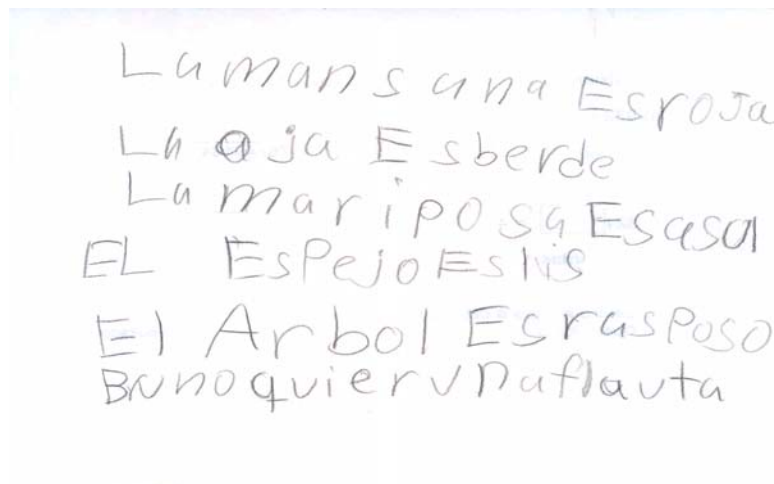 La mansana Esroja
La oja Esberde
La mariposa Esasul
EL EsPejo Eslis
El Arbol EsrasPoso
Brunoquierunaflauta